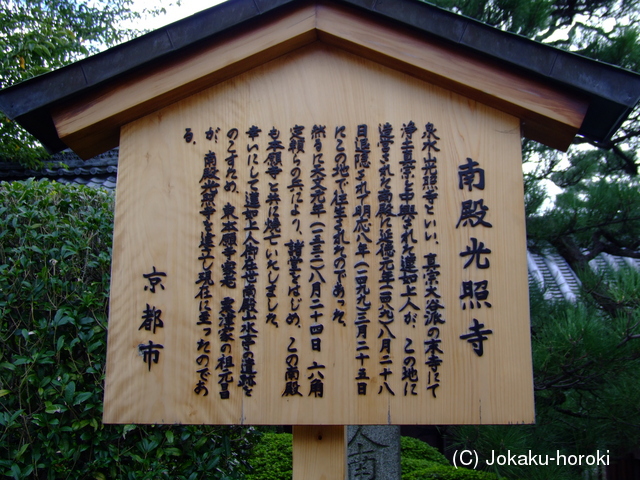 南殿光照寺
泉水山光照寺といい、真宗大谷派の末寺にて
浄土真宗を中興された蓮如上人が、この地に
造営された南殿に延徳元年(一四八九)八月二十八
日退隠されて明応八年(一四九九)三月二十五日
にこの地で往生されたのであった。
然るに天文元年(一五三二)八月二十四日 六角
定頼らの兵により、諸堂をはじめ、この南殿
も本願寺と共に焼亡いたしました。
幸いにして蓮如上人御在世の南殿山水亭の遺跡を
のこすため、東本願寺家老 粟津家の祖元昌
が、南殿光照寺を建立し現在に至ったのであ
る。
京都市
南
(C) Jokaku-horoki